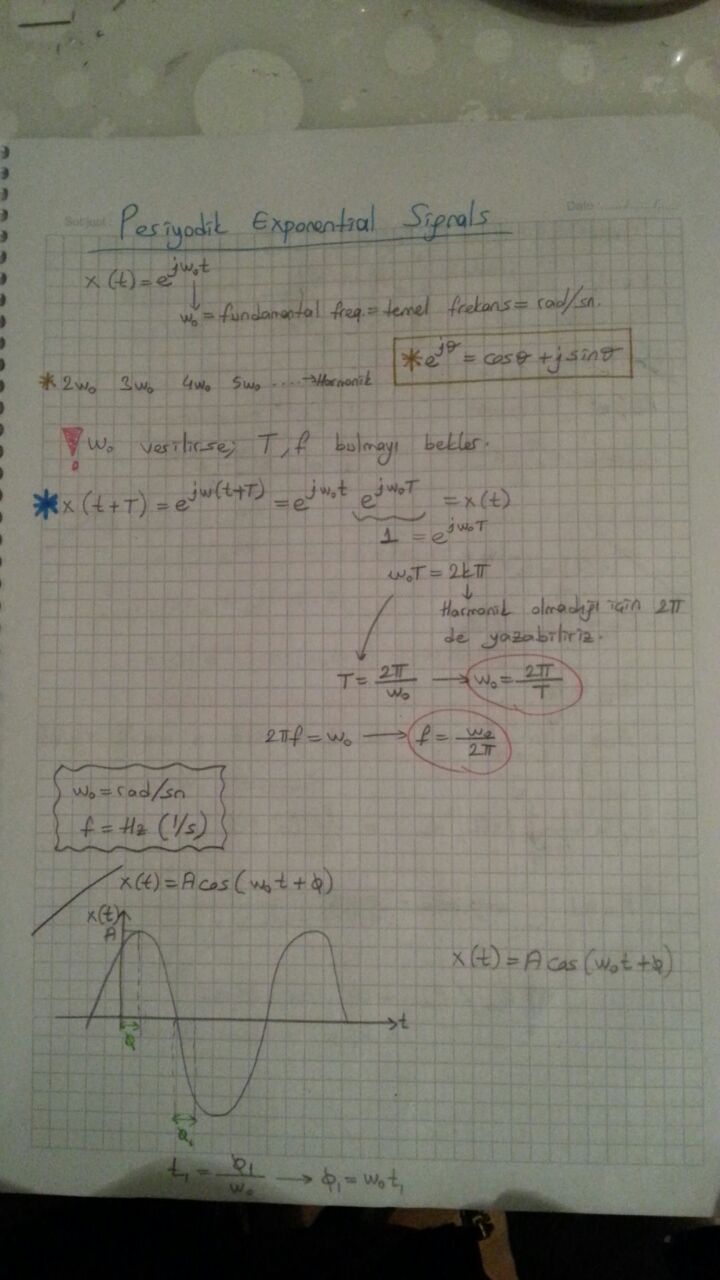 Subject: Date ...../...../.....
Periyodik Exponential Signals
x(t) = e^jw₀t
w₀ = fundamental freq. = temel frekans = rad/sn.
* e^jθ = cosθ + j sinθ
* 2w₀ 3w₀ 4w₀ 5w₀ ....→ Harmonik
! w₀ verilirse; T, f bulmayı bekler.
* x(t+T) = e^jw(t+T) = e^jw₀t e^jw₀T = x(t)
1 = e^jw₀T
w₀T = 2kπ
Harmonik olmadığı için 2π
de yazabiliriz.
T = 2π/w₀ → w₀ = 2π/T
2πf = w₀ → f = w₀/2π
w₀ = rad/sn
f = Hz (1/s)
x(t) = A cos(w₀t + φ)
x(t)
A
x(t) = A cos(w₀t + φ)
t
φ
φ₁
t₁ = φ₁/w₀ → φ₁ = w₀t₁